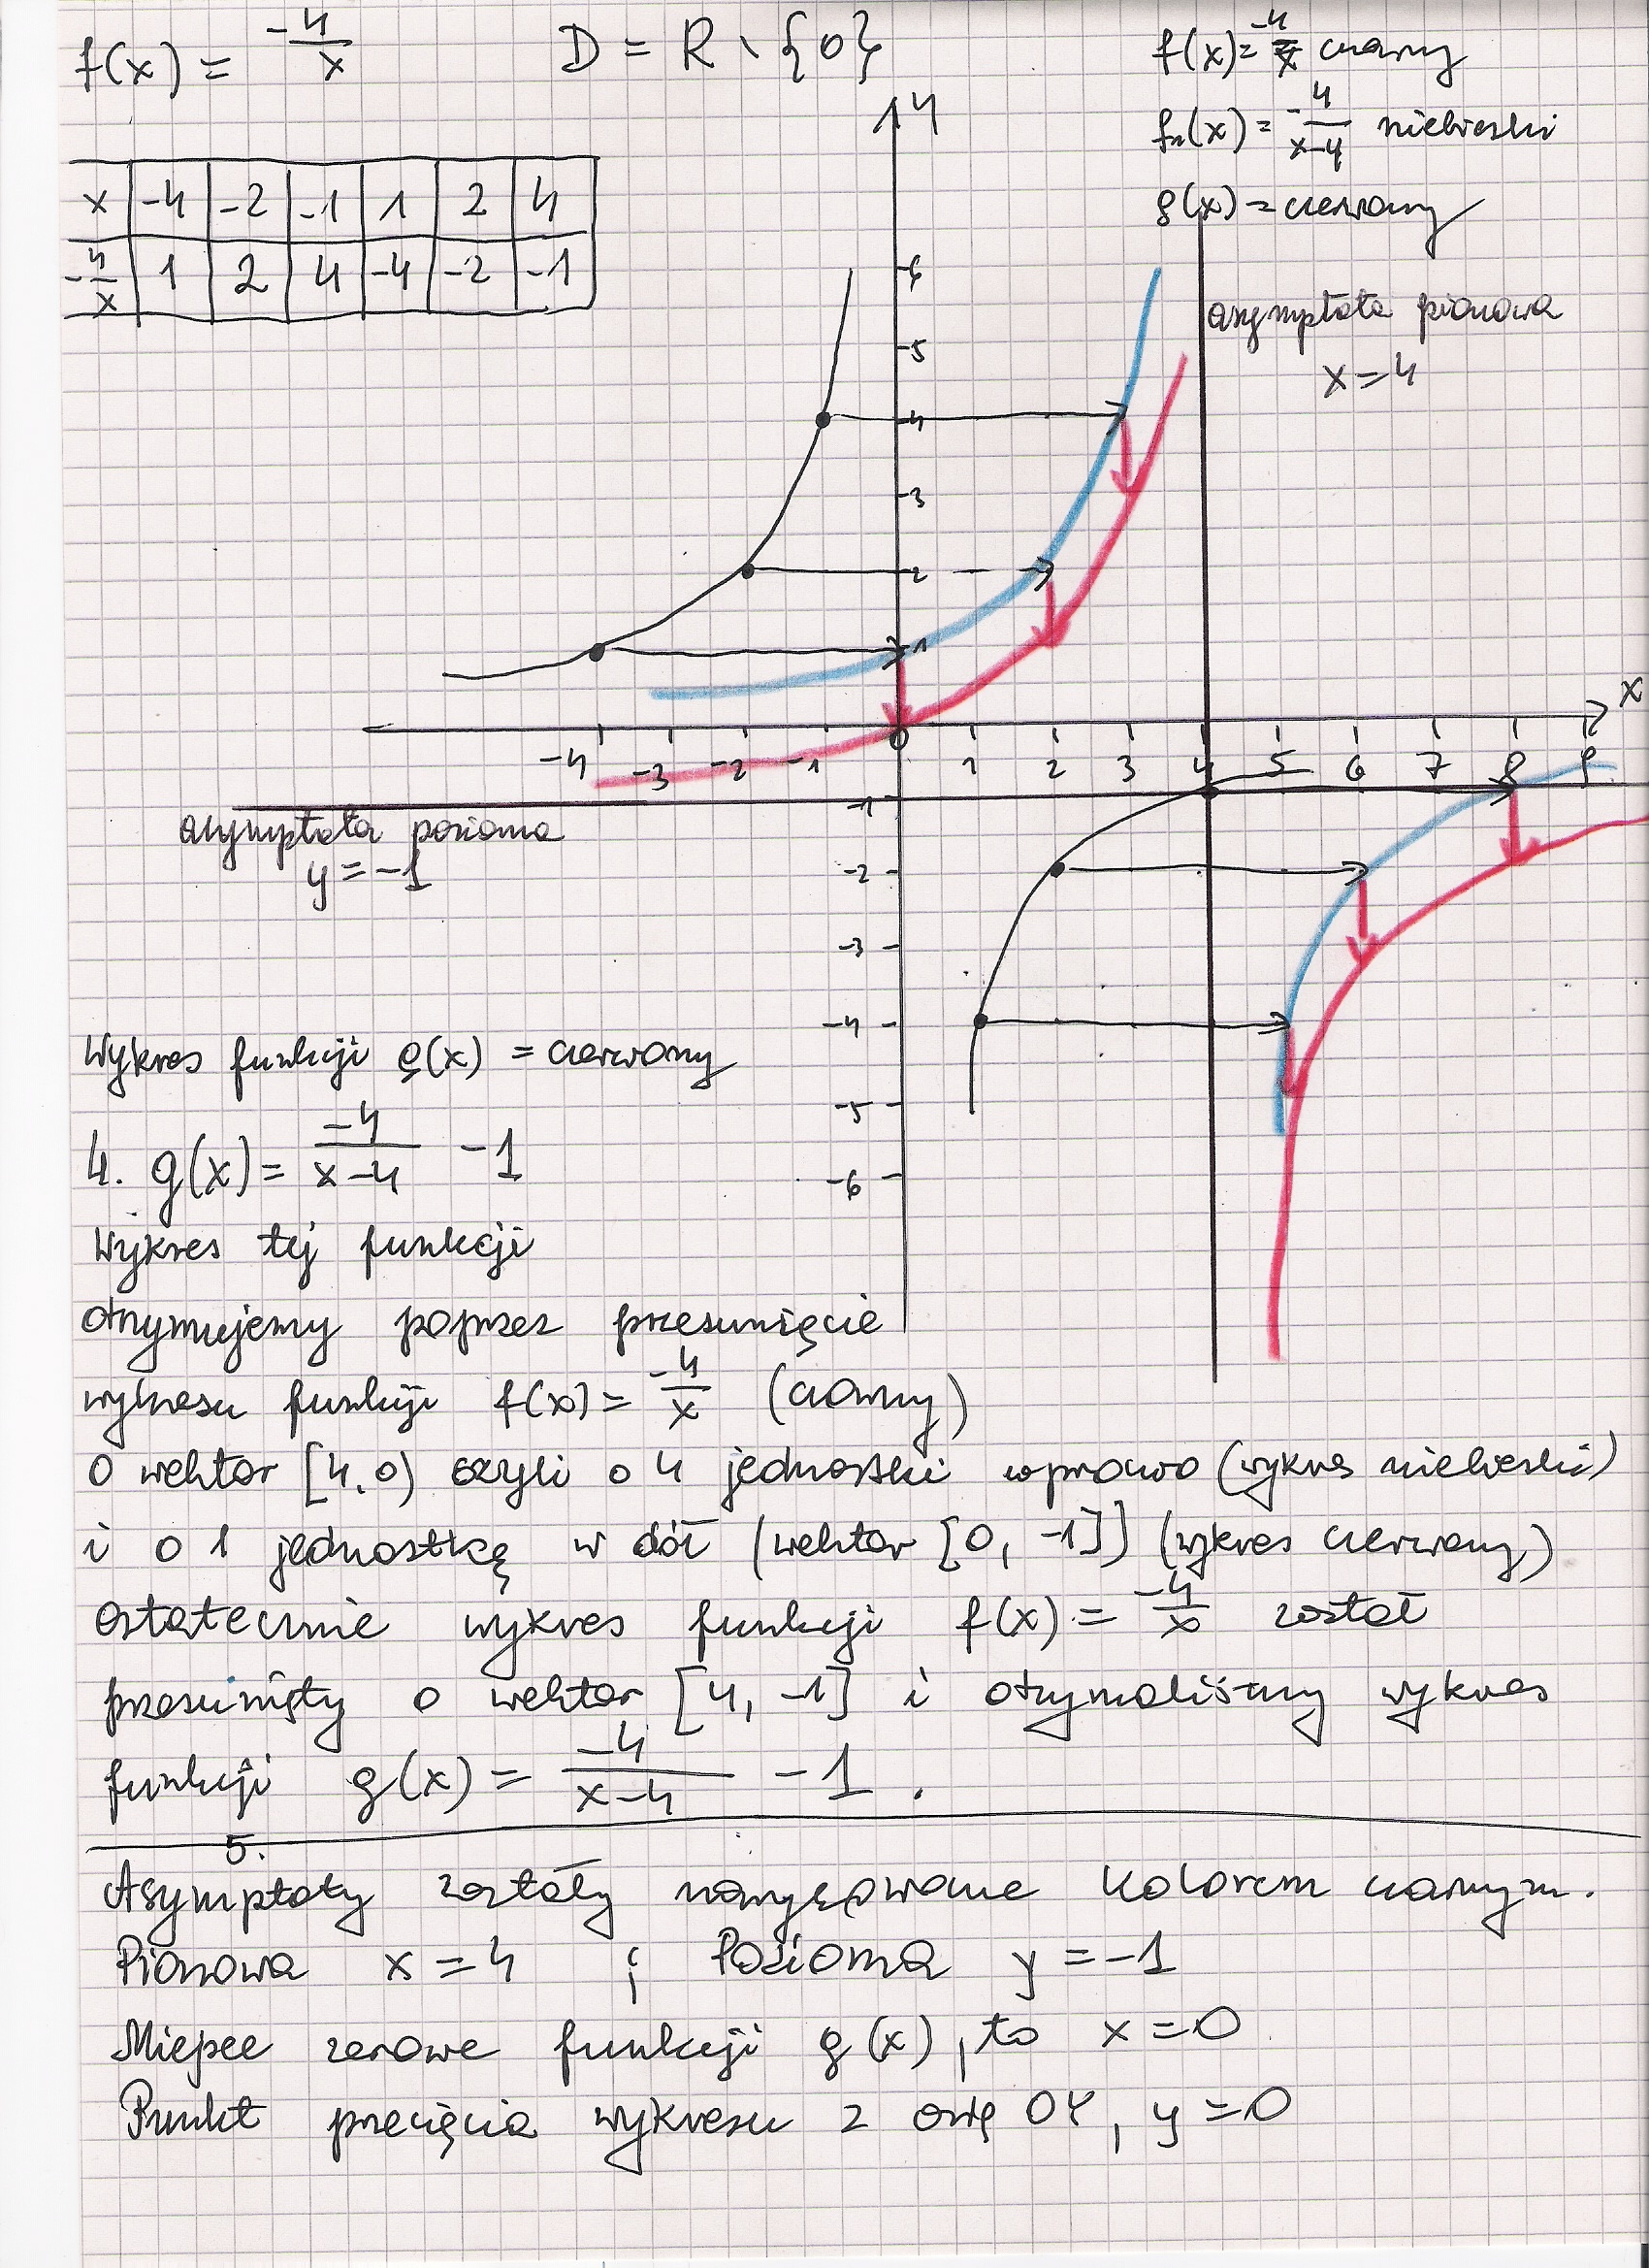 f(x) = -4/x   D = R \ {0}
f(x) = -4/x czarny
f₁(x) = -4/(x-4) niebieski
g(x) = czerwony
x | -4 | -2 | -1 | 1 | 2 | 4
-4/x | 1 | 2 | 4 | -4 | -2 | -1
Y
asymptota pionowa
x = 4
6
5
4
3
2
1
X
-4 -3 -2 -1 0 1 2 3 4 5 6 7 8 9
-1
asymptota pozioma
y = -1
-2
-3
-4
-5
-6
Wykres funkcji g(x) = czerwony
4. g(x) = -4/(x-4) -1
Wykres tej funkcji
otrzymujemy poprzez przesunięcie
wykresu funkcji f(x) = -4/x (czarny)
o wektor [4,0) czyli o 4 jednostki w prawo (wykres niebieski)
i o 1 jednostkę w dół (wektor [0, -1]) (wykres czerwony)
ostatecznie wykres funkcji f(x) = -4/x został
przesunięty o wektor [4, -1] i otrzymaliśmy wykres
funkcji g(x) = -4/(x-4) -1.
5.
Asymptoty zostały narysowane kolorem czarnym.
Pionowa x = 4 ; Pozioma y = -1
Miejsce zerowe funkcji g(x), to x = 0
Punkt przecięcia wykresu z osią OY, y = 0